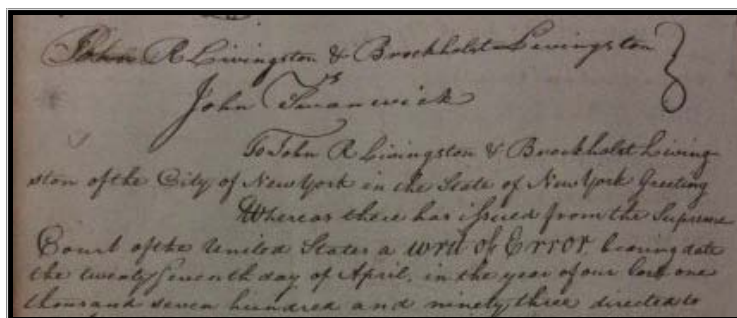 John R Livingston & Brockholst Livingston
vs
John Swanwick
To John R Livingston & Brockholst Living
ston of the City of New York in the State of New York Greeting
Whereas there has issued from the Supreme
Court of the United States a writ of Error bearing date
the twenty seventh day of April, in the year of our lord one
thousand seven hundred and ninety three directed to